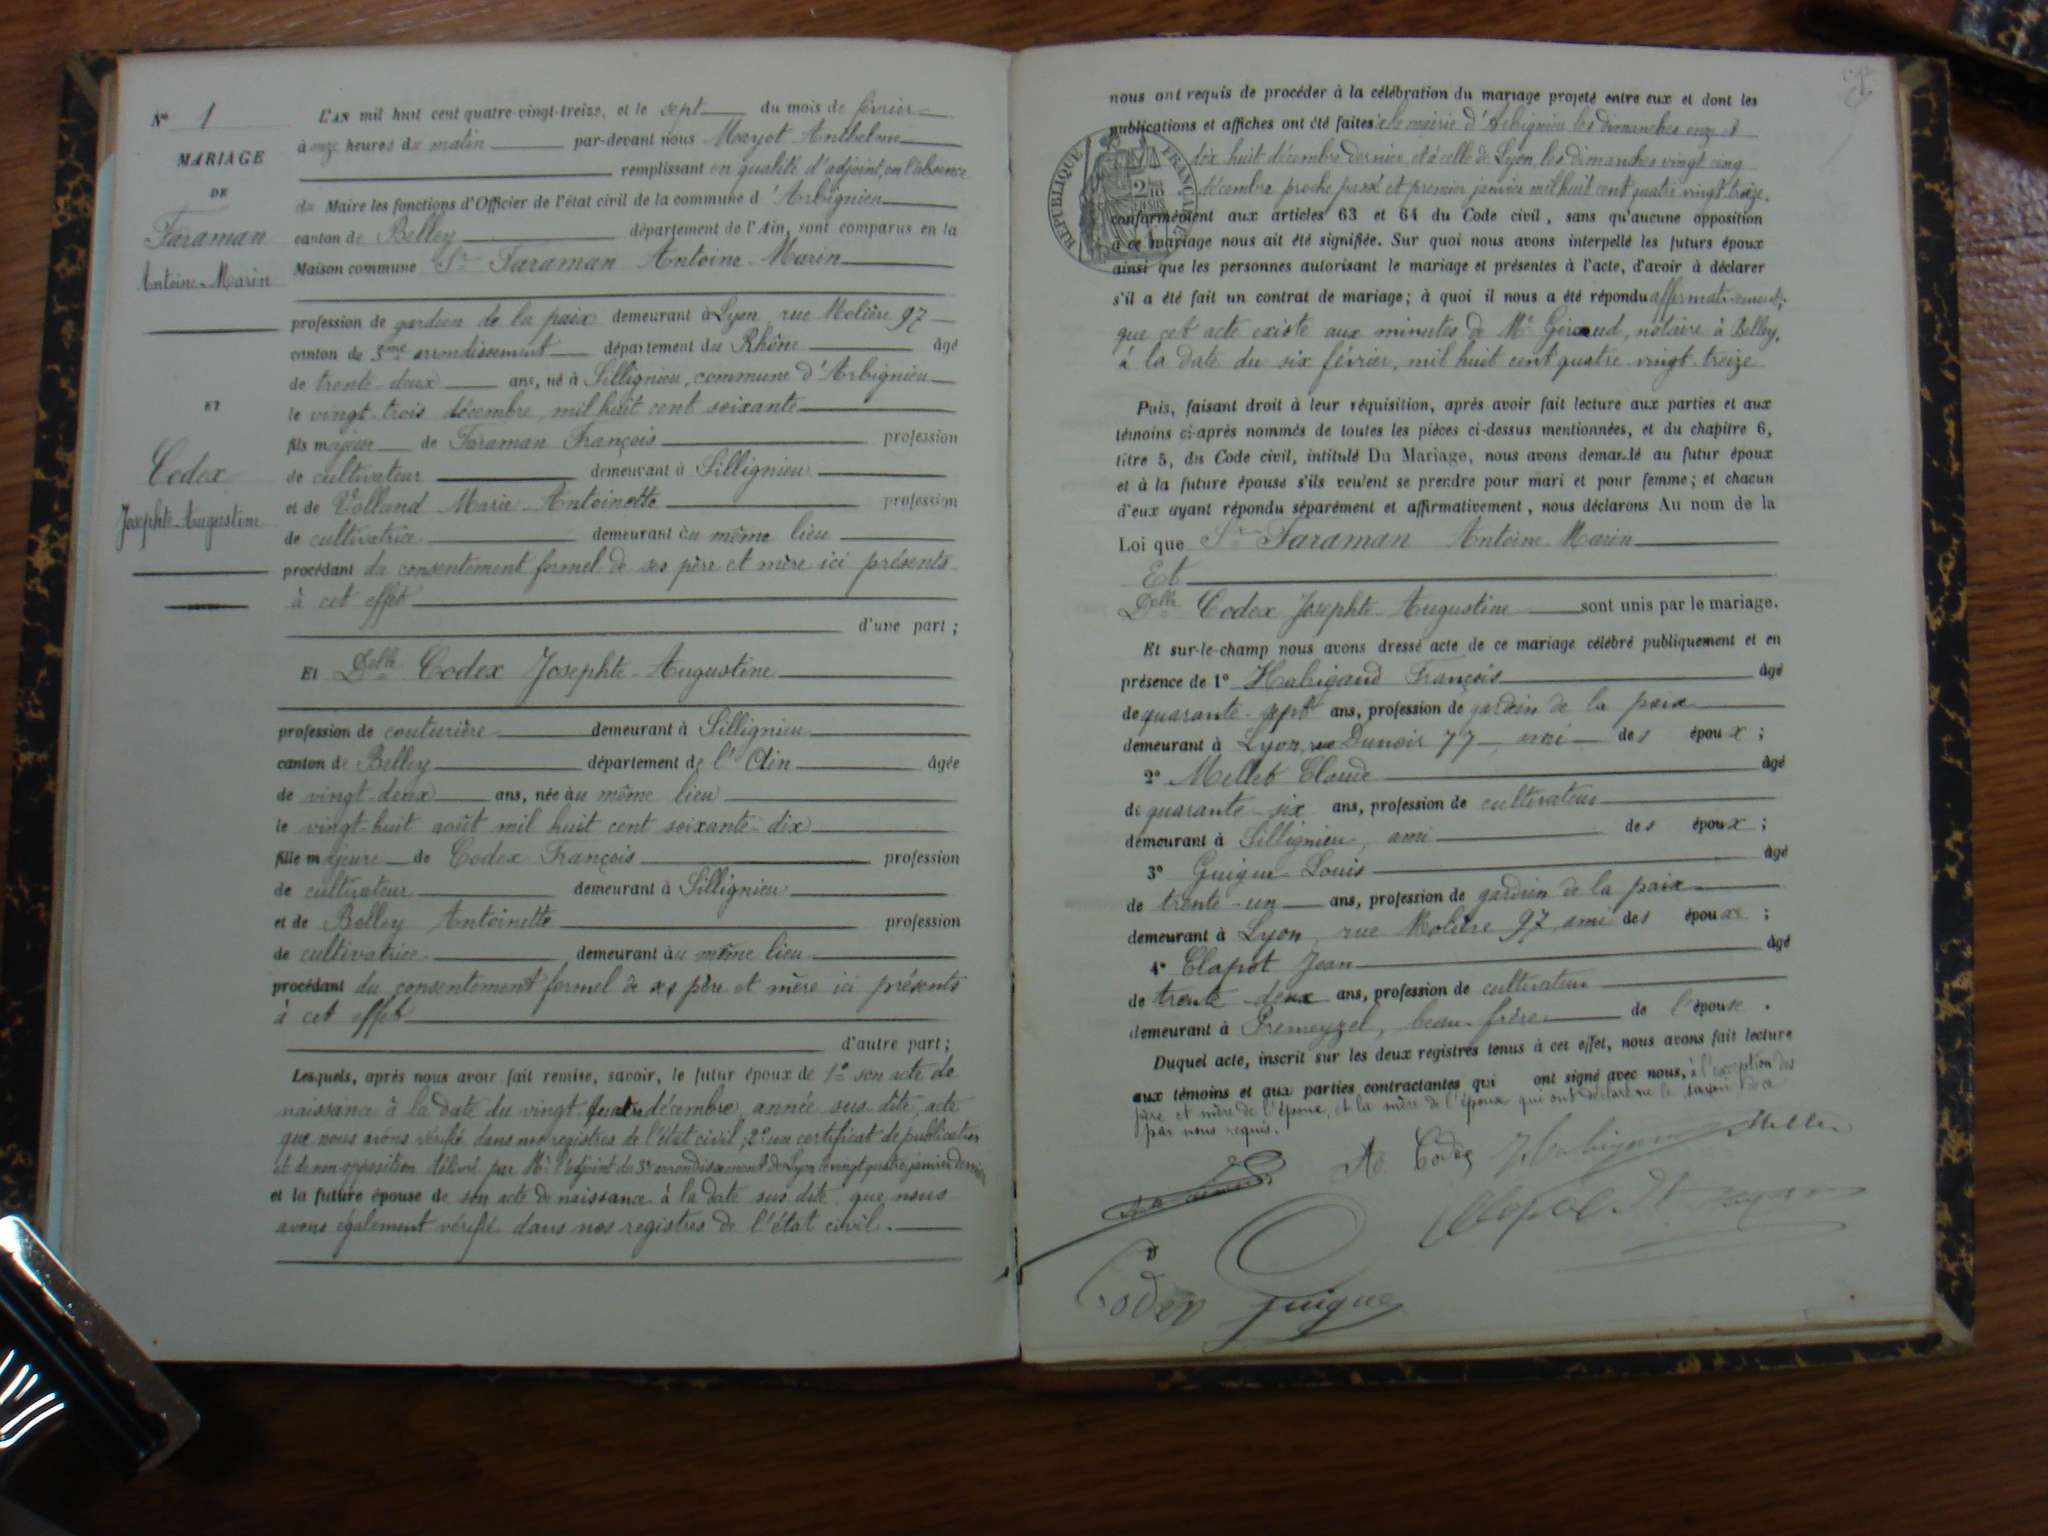 N° 1
MARIAGE
DE
Faraman
Antoine-Marin
ET
Codex
Josephte-Augustine
L'AN mil huit cent quatre-vingt-treize, et le sept du mois de février
à onze heures du matin par-devant nous Mayot Anthelme
remplissant en qualité d'adjoint, en l'absence
du Maire les fonctions d'Officier de l'état civil de la commune d'Arbignieu
canton de Belley département de l'Ain, sont comparus en la
Maison commune Sr Faraman Antoine-Marin
profession de gardien de la paix demeurant à Lyon, rue Molière 97
canton de 3me arrondissement département du Rhône âgé
de trente-deux ans, né à Sillignieu, commune d'Arbignieu
le vingt-trois décembre, mil huit cent soixante
fils majeur de Faraman François profession
de cultivateur demeurant à Sillignieu
et de Volland Marie-Antoinette profession
de cultivatrice demeurant au même lieu
procédant du consentement formel de ses père et mère ici présents
à cet effet
d'une part ;
Et Delle Codex Josephte-Augustine
profession de couturière demeurant à Sillignieu
canton de Belley département de l'Ain âgée
de vingt-deux ans, née au même lieu
le vingt-huit août mil huit cent soixante-dix
fille majeure de Codex François profession
de cultivateur demeurant à Sillignieu
et de Belley Antoinette profession
de cultivatrice demeurant au même lieu
procédant du consentement formel de ses père et mère ici présents
à cet effet
d'autre part ;
Lesquels, après nous avoir fait remise, savoir, le futur époux de 1° son acte de
naissance à la date du vingt-quatre décembre, année sus-dite, acte
que nous avons vérifié dans nos registres de l'état civil ; 2° un certificat de publication
et de non-opposition délivré par Mr l'adjoint du 3e arrondissement de Lyon le vingt quatre janvier dernier
et la future épouse de son acte de naissance à la date sus-dite que nous
avons également vérifié dans nos registres de l'état civil.
nous ont requis de procéder à la célébration du mariage projeté entre eux et dont les
publications et affiches ont été faites à la mairie d'Arbignieu les dimanches onze et
dix huit décembre dernier, et à celle de Lyon, les dimanches vingt cinq
décembre proche passé et premier janvier mil huit cent quatre vingt treize.
RÉPUBLIQUE FRANÇAISE
conformément aux articles 63 et 64 du Code civil, sans qu'aucune opposition
à ce mariage nous ait été signifiée. Sur quoi nous avons interpellé les futurs époux
ainsi que les personnes autorisant le mariage et présentes à l'acte, d'avoir à déclarer
s'il a été fait un contrat de mariage ; à quoi il nous a été répondu affirmativement,
que cet acte existe aux minutes de Me Giraud, notaire à Belley,
à la date du six février, mil huit cent quatre-vingt-treize
Puis, faisant droit à leur réquisition, après avoir fait lecture aux parties et aux
témoins ci-après nommés de toutes les pièces ci-dessus mentionnées, et du chapitre 6,
titre 5, du Code civil, intitulé Du Mariage, nous avons demandé au futur époux
et à la future épouse s'ils veulent se prendre pour mari et pour femme ; et chacun
d'eux ayant répondu séparément et affirmativement, nous déclarons Au nom de la
Loi que Sr Faraman Antoine-Marin
Et
Delle Codex Josephte-Augustine sont unis par le mariage.
Et sur-le-champ nous avons dressé acte de ce mariage célébré publiquement et en
présence de 1° Habigand François âgé
de quarante-sept ans, profession de gardien de la paix
demeurant à Lyon, rue Dunoir 77, ami des époux ;
2° Mellet Claude âgé
de quarante-six ans, profession de cultivateur
demeurant à Sillignieu, ami des époux ;
3° Guigue Louis âgé
de trente-un ans, profession de gardien de la paix
demeurant à Lyon, rue Molière 97 ami des époux ;
4° Clapot Jean âgé
de trente-deux ans, profession de cultivateur
demeurant à Premeyzel, beau-frère de l'épouse.
Duquel acte, inscrit sur les deux registres tenus à cet effet, nous avons fait lecture
aux témoins et aux parties contractantes qui ont signé avec nous, à l'exception des
père et mère de l'époux, et la mère de l'épouse qui ont déclaré ne le savoir, de ce
par nous requis.
Codex Mellet
Clapot
Codex Guigue